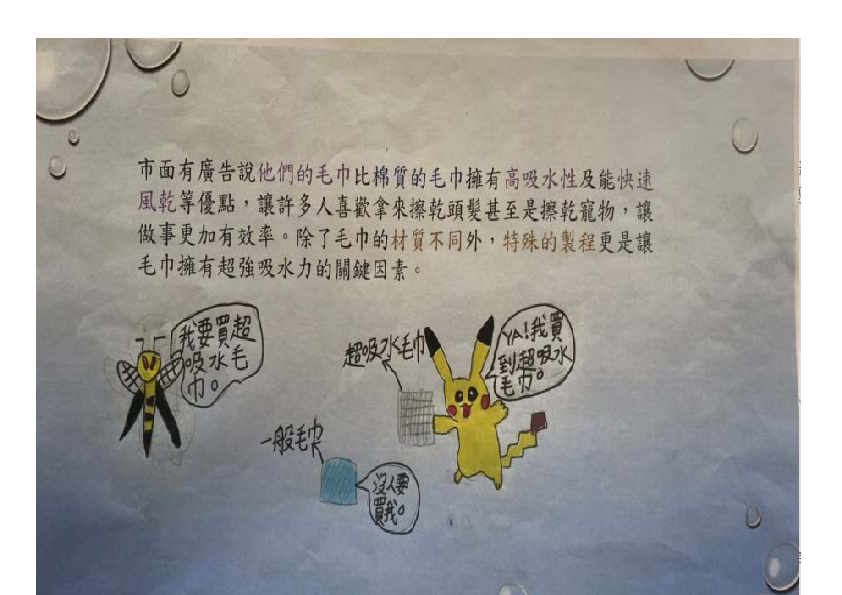 市面有廣告說他們的毛巾比棉質的毛巾擁有高吸水性及能快速
風乾等優點，讓許多人喜歡拿來擦乾頭髮甚至是擦乾寵物，讓
做事更加有效率。除了毛巾的材質不同外，特殊的製程更是讓
毛巾擁有超強吸水力的關鍵因素。
我要買超
吸水毛
巾。
超吸水毛巾
YA!我買
到超吸水
毛巾。
一般毛巾
沒人要
買我。